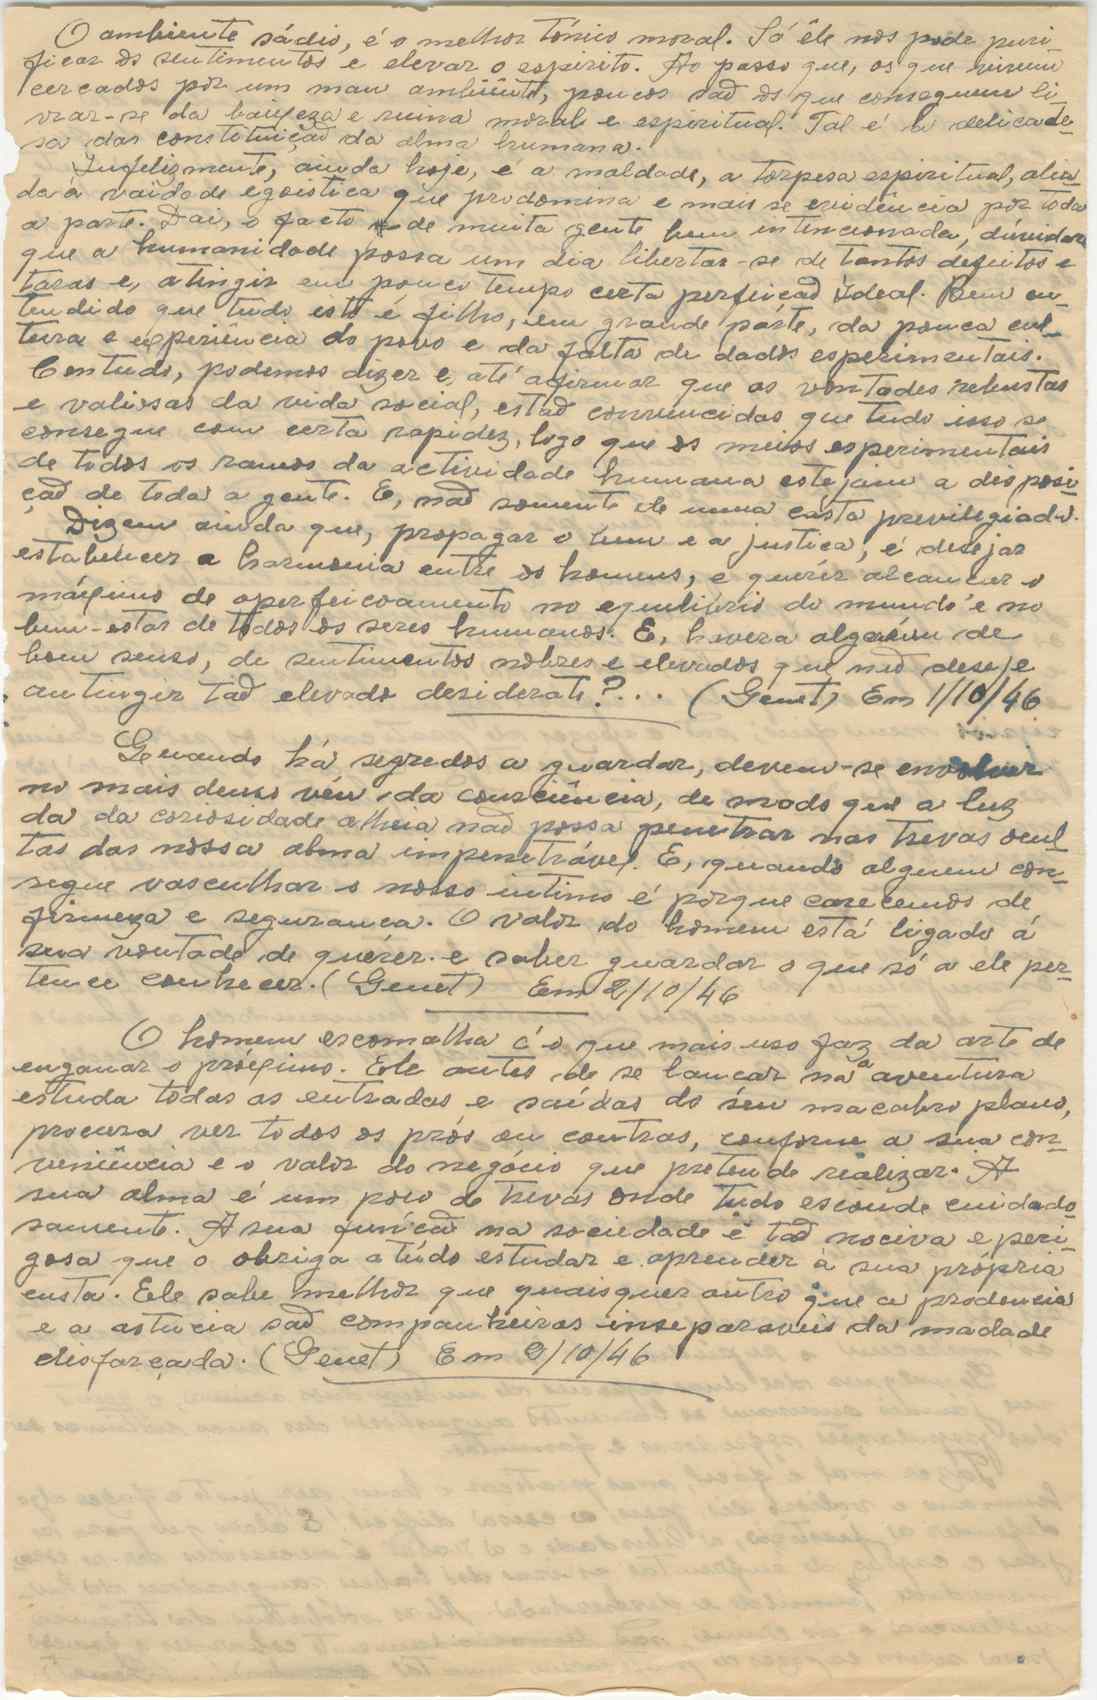 O ambiente sádio, é o melhor tónico moral. Só êle nos pode puri-
ficar os sentimentos e elevar o espirito. Ao passo que, os que vivem
cercados por um mau ambiente, poucos são os que conseguem li-
vrar-se da baixeza e ruina moral e espiritual. Tal é a delicade-
sa das constituição da alma humana.
Infelizmente, ainda hoje, é a maldade, a torpesa espiritual, alia-
da á vaidade egoistica que predomina e mais se evidência por toda
a parte. Dai, o facto de muita gente bem intencionada, dúvidar
que a humanidade possa um dia libertar-se de tantos defeitos e
taras e, atingir em pouco tempo certa perfeição ideal. Bem en-
tendido que tudo isto é filho, em grande parte, da pouca cul-
tura e experiência do povo e da falta de dados esperimentais.
Contudo, podemos dizer e, até afirmar que as vontades rebustas
e valiosas da vida social, estão convencidas que tudo isso se
consegue com certa rapidez, logo que os meios esperimentais
de todos os ramos da actividade humana estejam a disposi-
ção de toda a gente. E, não somente de uma casta previlegiada.
Dizem ainda que, propagar o bem e a justiça, é desejar
estabelecer a harmonia entre os homens, e querer alcançar o
máximo de aperfeicoamento no equilibrio do mundo e no
bem-estar de todos os seres humanos. E, havera alguém de
bom senso, de sentimentos nobres e elevados que não deseje
antingir tão elevado desiderato?... (Genet) Em 1/10/46
Quando há segredos a guardar, devem-se envolver
no mais denso véu da consciência, de modo que a luz
da da coriosidade alheia não possa penetrar nas trevas ocul
tas das nossa alma impenetrável. E, quando alguem con-
segue vasculhar o nosso intimo é porque carecemos de
firmeza e seguranca. O valor do homem está ligado á
sua vontade de querer e saber guardar o que só a ele per-
tence conhecer. (Genet) Em 2/10/46
O homem escomalha é o que mais uso faz da arte de
enganar o próximo. Ele antes de se lançar na aventura
estuda todas as entradas e saídas do seu macabro plano,
procura ver todos os prós ou contras, conforme a sua con-
veniência e o valor do negócio que pretende realizar. A
sua alma é um poco de trevas onde tudo esconde cuidado-
samente. A sua função na sociedade é tão nociva e peri-
gosa que o obriga a tudo estudar e aprender á sua própria
custa. Ele sabe melhor que quaisquer outro que a prodencia
e a astucia são companheiras inseparaveis da madade
disfarçada. (Genet) Em 2/10/46